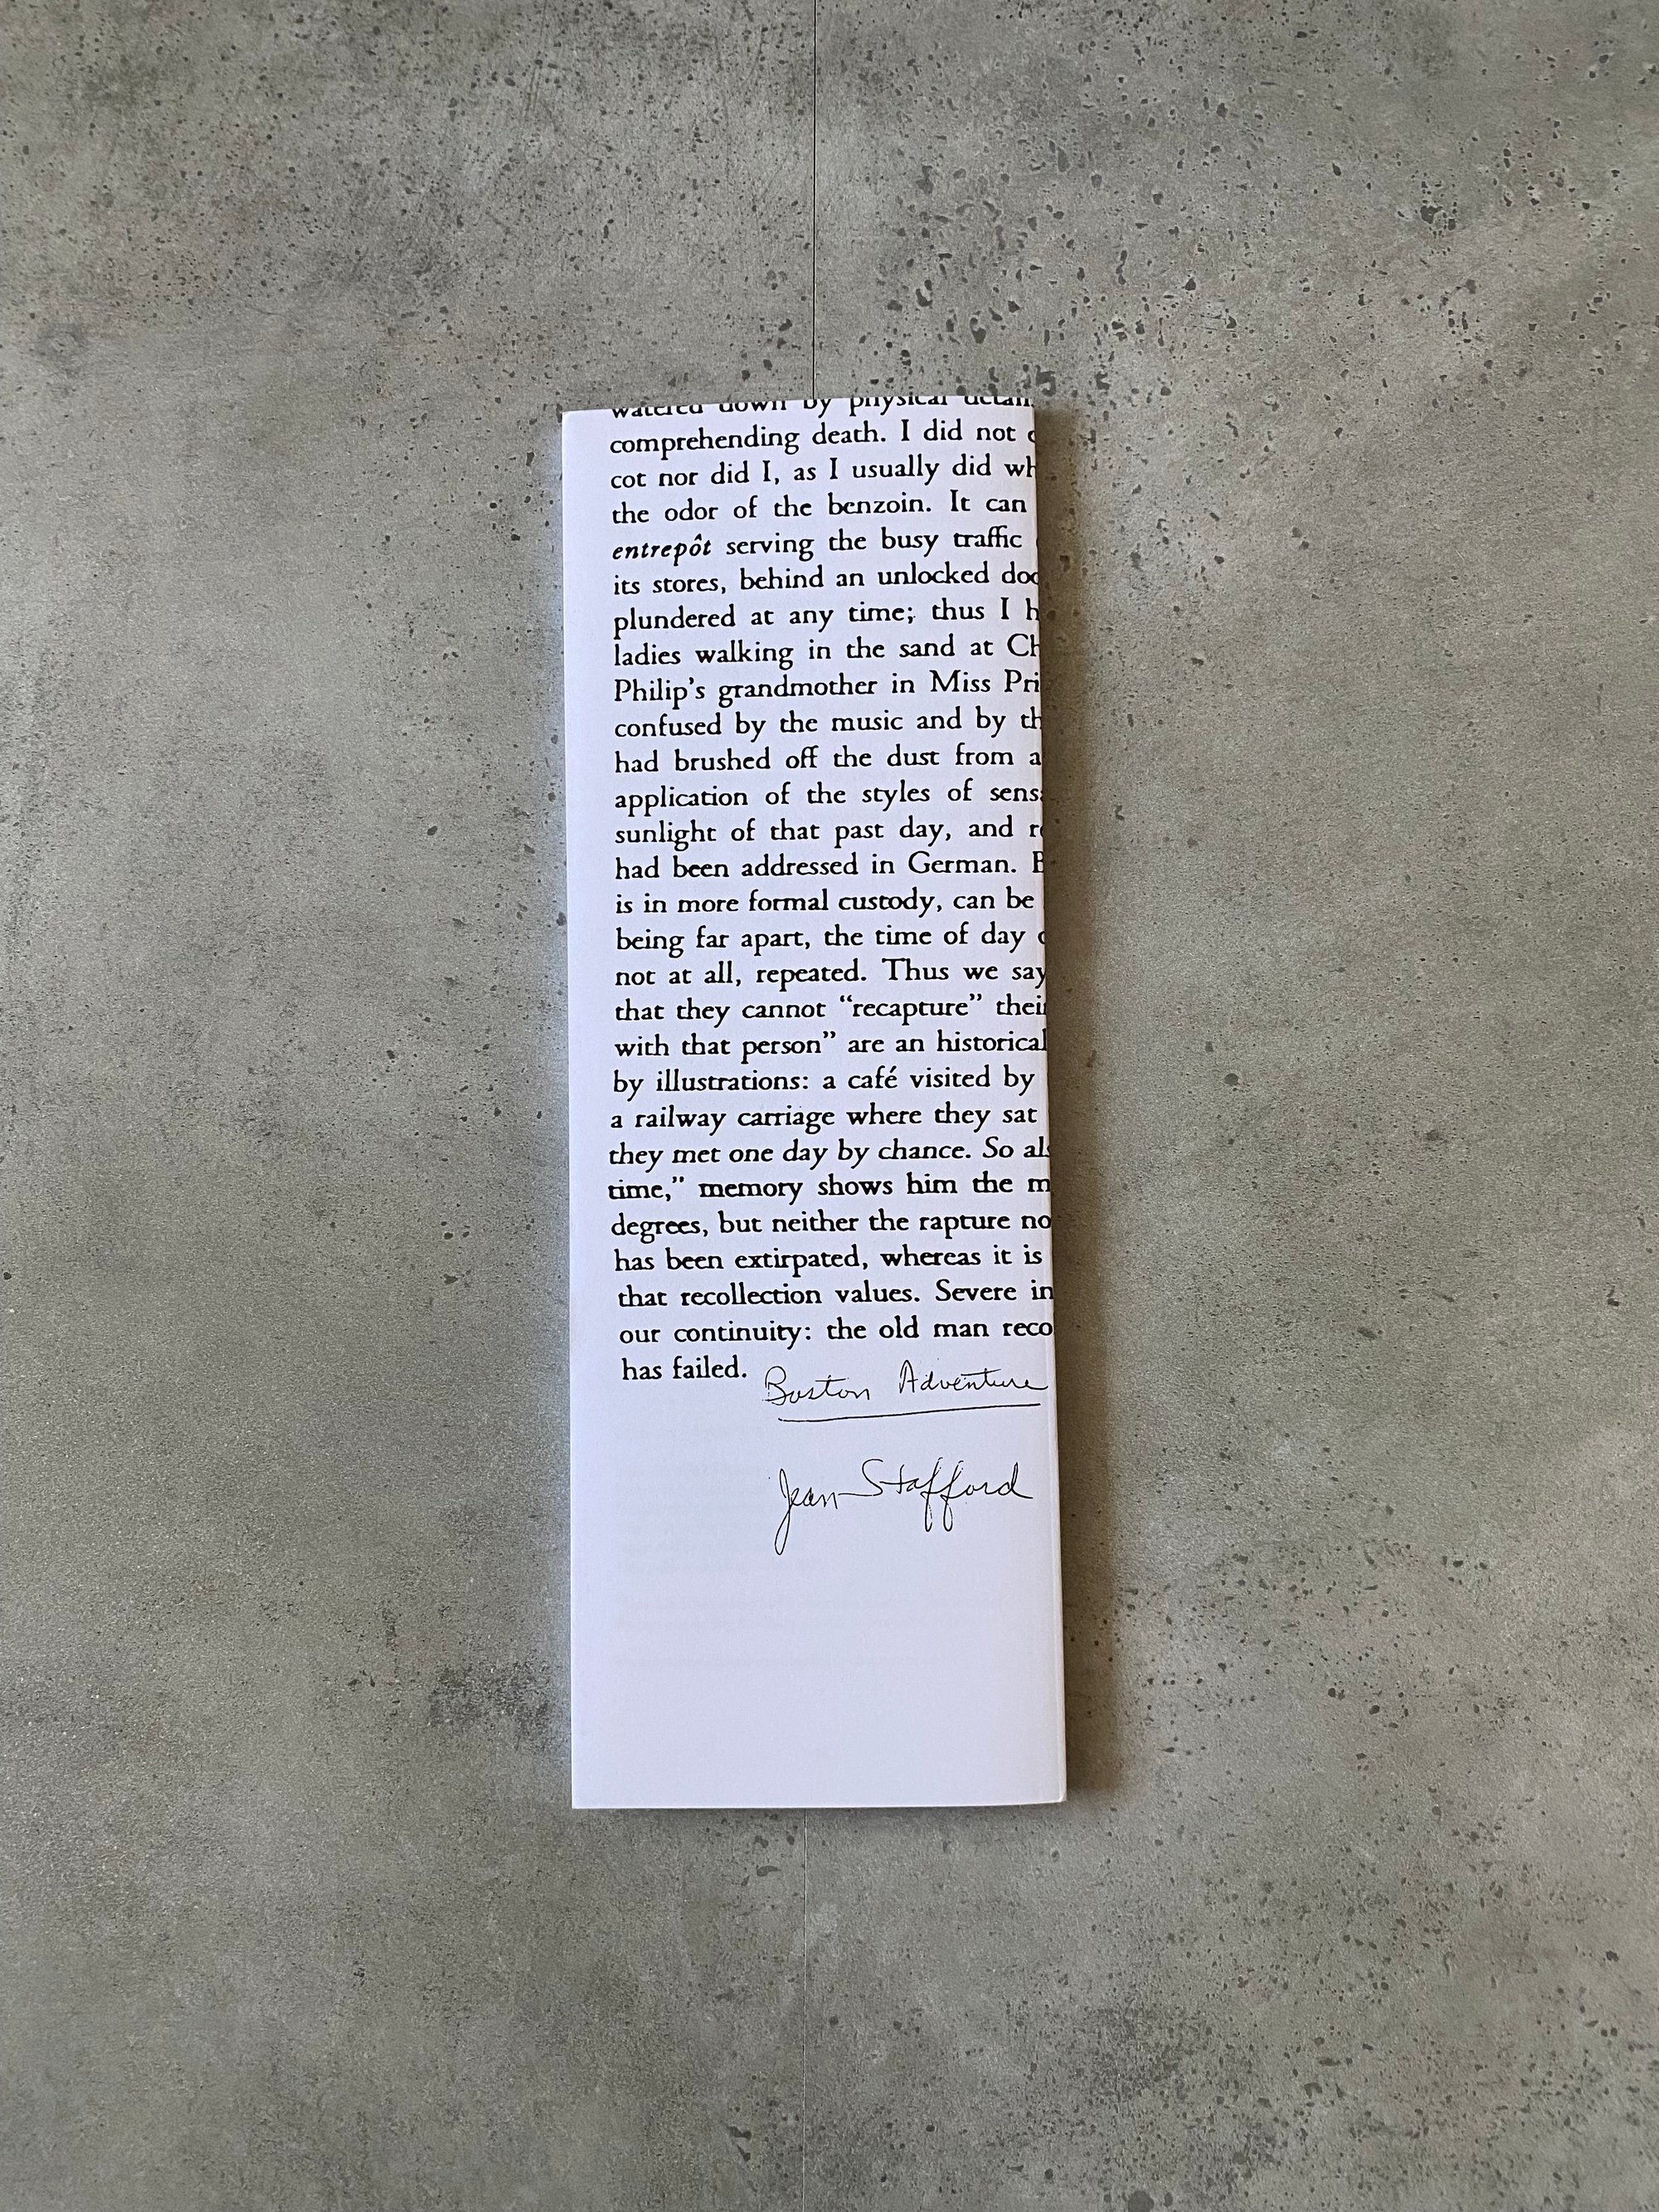 watered down by physical detail
comprehending death. I did not
cot nor did I, as I usually did wh
the odor of the benzoin. It can
entrepôt serving the busy traffic
its stores, behind an unlocked doo
plundered at any time; thus I h
ladies walking in the sand at Ch
Philip's grandmother in Miss Pri
confused by the music and by th
had brushed off the dust from a
application of the styles of sens
sunlight of that past day, and r
had been addressed in German. B
is in more formal custody, can be
being far apart, the time of day
not at all, repeated. Thus we say
that they cannot “recapture” thei
with that person” are an historical
by illustrations: a café visited by
a railway carriage where they sat
they met one day by chance. So als
time,” memory shows him the m
degrees, but neither the rapture no
has been extirpated, whereas it is
that recollection values. Severe in
our continuity: the old man reco
has failed.
Boston Adventure
Jean Stafford